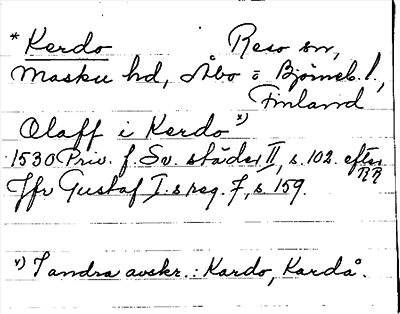 * Kerdo Reso sn,
Masku hd, Åbo o Björneb. l.,
Finland
Olaff i Kerdo x)
1530 Priv. f. Sv. städer II, s. 102. efter RR
Jfr Gustaf I:s reg. 7, s. 159.
x) I andra avskr.: Kardo, Kardå.